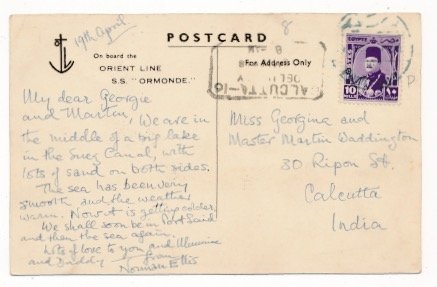 19th April
8
POSTCARD
On board the
ORIENT LINE
S.S. "ORMONDE."
For Address Only
CALCUTTA-16
DELY
8-AM
EGYPTE
10
MILLS
My dear Georgie
and Martin, We are in
the middle of a big lake
in the Suez Canal, with
lots of sand on both sides.
The sea has been very
smooth and the weather
warm. Now it is getting colder.
We shall soon be in Port Said
and then the sea again.
Lots of love to you and Mummie
and Daddy from
Norman Ellis
Miss Georgina and
Master Martin Waddington
30 Ripon St.
Calcutta
India